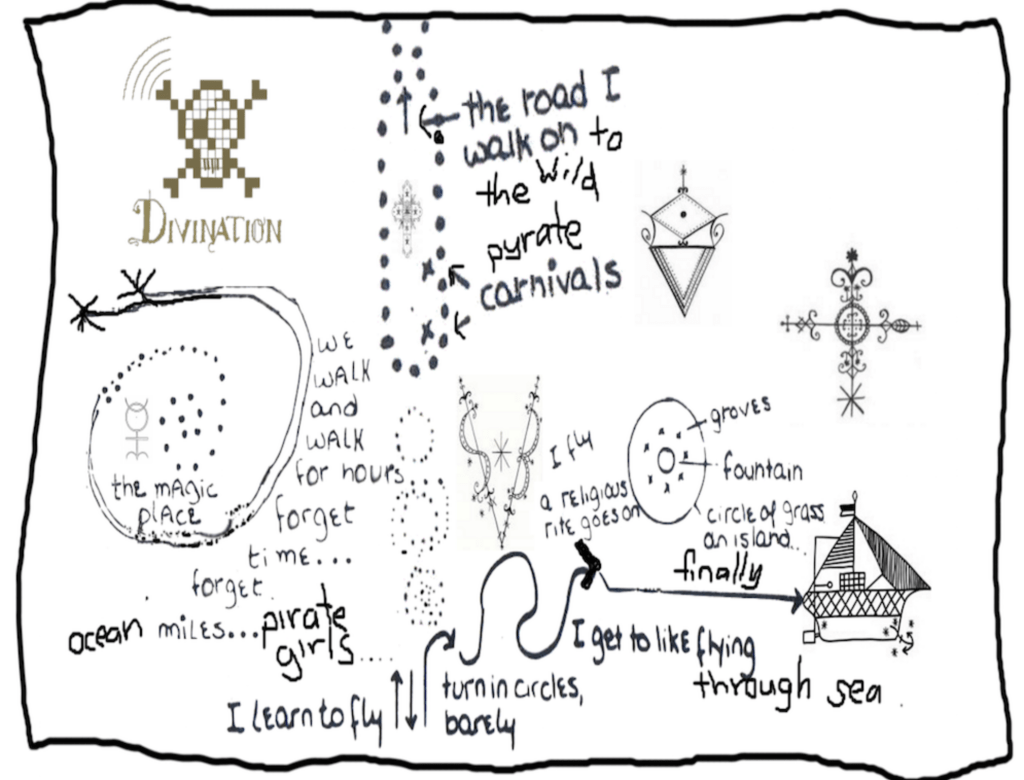 DIVINATION
the road I
walk on to
the wild
pyrate
carnivals
WE
WALK
and
WALK
for hours
forget
time...
forget
ocean miles...pirate
girls.....
the mAgic
plAce
I fly
a religious
rite goes on
groves
fountain
circle of grass
an island...
finally
I learn to fly
turn in circles,
barely
I get to like flying
through sea.